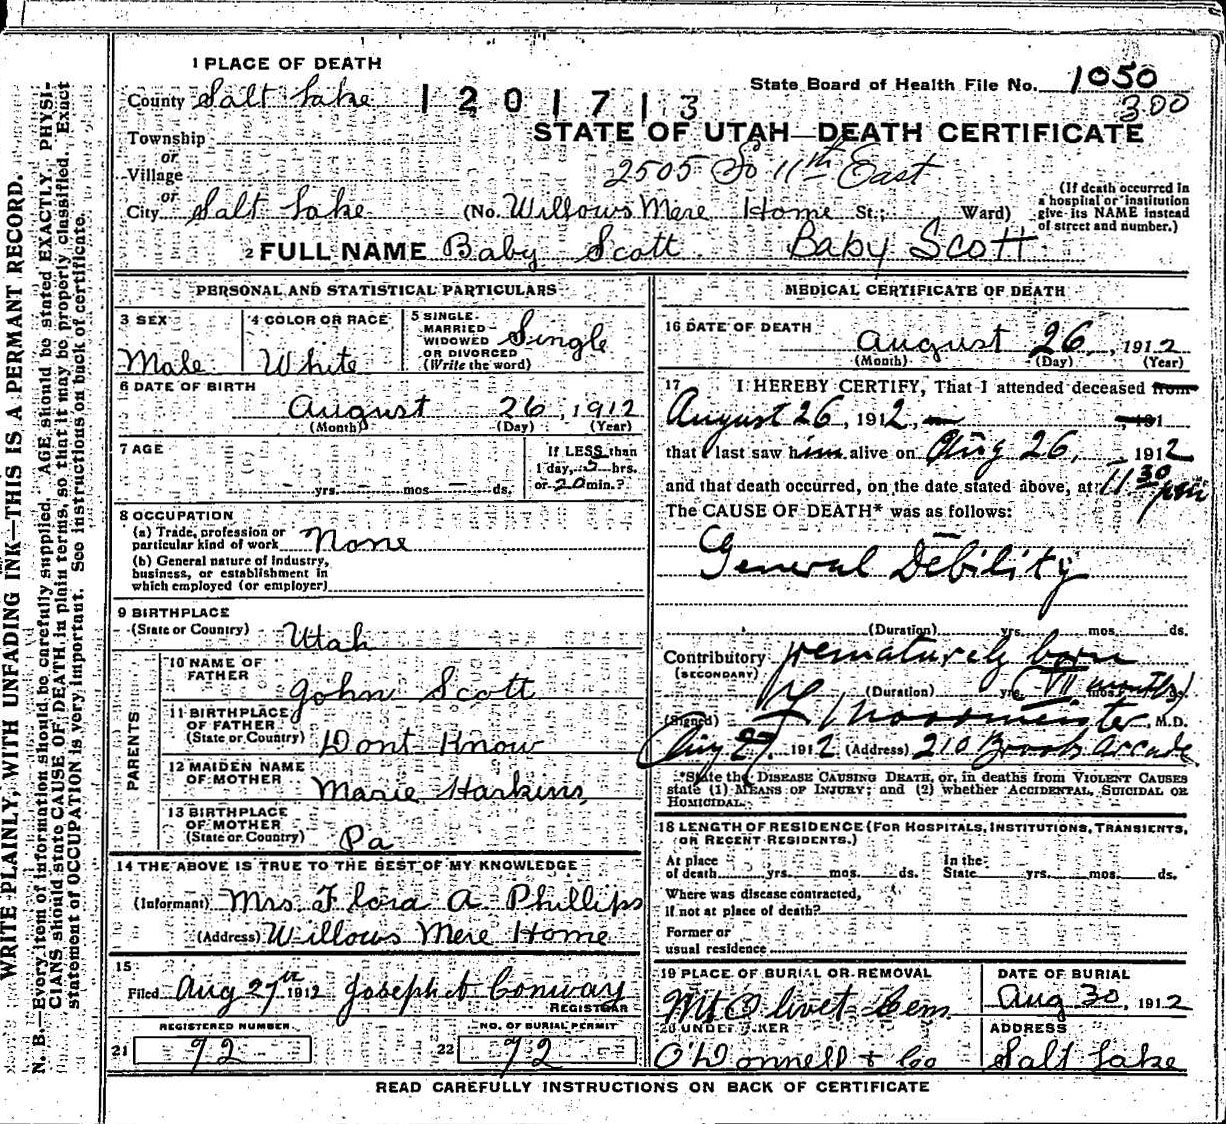 WRITE PLAINLY, WITH UNFADING INK—THIS IS A PERMANT RECORD.
N. B.—Every item of information should be carefully supplied. AGE should be stated EXACTLY. PHYSI-
CIANS should state CAUSE OF DEATH in plain terms, so that it may be properly classified. Exact
statement of OCCUPATION is very important. See instructions on back of certificate.
1 PLACE OF DEATH
State Board of Health File No. 1050
County Salt Lake 1201713 300
STATE OF UTAH—DEATH CERTIFICATE
Township
or
Village 2505 So 11th East
or
City Salt Lake (No. Willows Mere Home St.; Ward)
(If death occurred in
a hospital or institution
give its NAME instead
of street and number.)
2 FULL NAME Baby Scott Baby Scott
PERSONAL AND STATISTICAL PARTICULARS
3 SEX Male
4 COLOR OR RACE White
5 SINGLE
MARRIED
WIDOWED Single
OR DIVORCED
(Write the word)
6 DATE OF BIRTH
August 26, 1912
(Month) (Day) (Year)
7 AGE
yrs. mos. ds.
If LESS than
1 day, 5 hrs.
or 20 min.?
8 OCCUPATION
(a) Trade, profession or
particular kind of work None
(b) General nature of industry,
business, or establishment in
which employed (or employer)
9 BIRTHPLACE
(State or Country) Utah
PARENTS
10 NAME OF
FATHER John Scott
11 BIRTHPLACE
OF FATHER
(State or Country) Dont Know
12 MAIDEN NAME
OF MOTHER Marie Harkins
13 BIRTHPLACE
OF MOTHER
(State or Country) Pa
14 THE ABOVE IS TRUE TO THE BEST OF MY KNOWLEDGE
(Informant) Mrs Flora A Phillips
(Address) Willows Mere Home
15
Filed Aug 27th 1912 Joseph Conway
REGISTRAR
REGISTERED NUMBER
21 92
NO. OF BURIAL PERMIT
22 92
MEDICAL CERTIFICATE OF DEATH
16 DATE OF DEATH
August 26, 1912
(Month) (Day) (Year)
17 I HEREBY CERTIFY, That I attended deceased from
August 26, 1912, 191
that I last saw him alive on Aug 26, 1912
and that death occurred, on the date stated above, at 11 30 pm
The CAUSE OF DEATH* was as follows:
General Debility
(Duration) yrs. mos. ds.
Contributory prematurely born
(SECONDARY)
(Duration) yrs. (VII months) mos. ds.
(Signed) M.D.
Aug 27, 1912 (Address) 210 Brooks Arcade
*State the DISEASE CAUSING DEATH, or, in deaths from VIOLENT CAUSES
state (1) MEANS OF INJURY; and (2) whether ACCIDENTAL, SUICIDAL OR
HOMICIDAL.
18 LENGTH OF RESIDENCE (FOR HOSPITALS, INSTITUTIONS, TRANSIENTS,
OR RECENT RESIDENTS.)
At place
of death yrs. mos. ds.
In the
State yrs. mos. ds.
Where was disease contracted,
if not at place of death?
Former or
usual residence
19 PLACE OF BURIAL OR REMOVAL
Mt Olivet Cem
DATE OF BURIAL
Aug 30, 1912
20 UNDERTAKER
O'Donnell & Co
ADDRESS
Salt Lake
READ CAREFULLY INSTRUCTIONS ON BACK OF CERTIFICATE